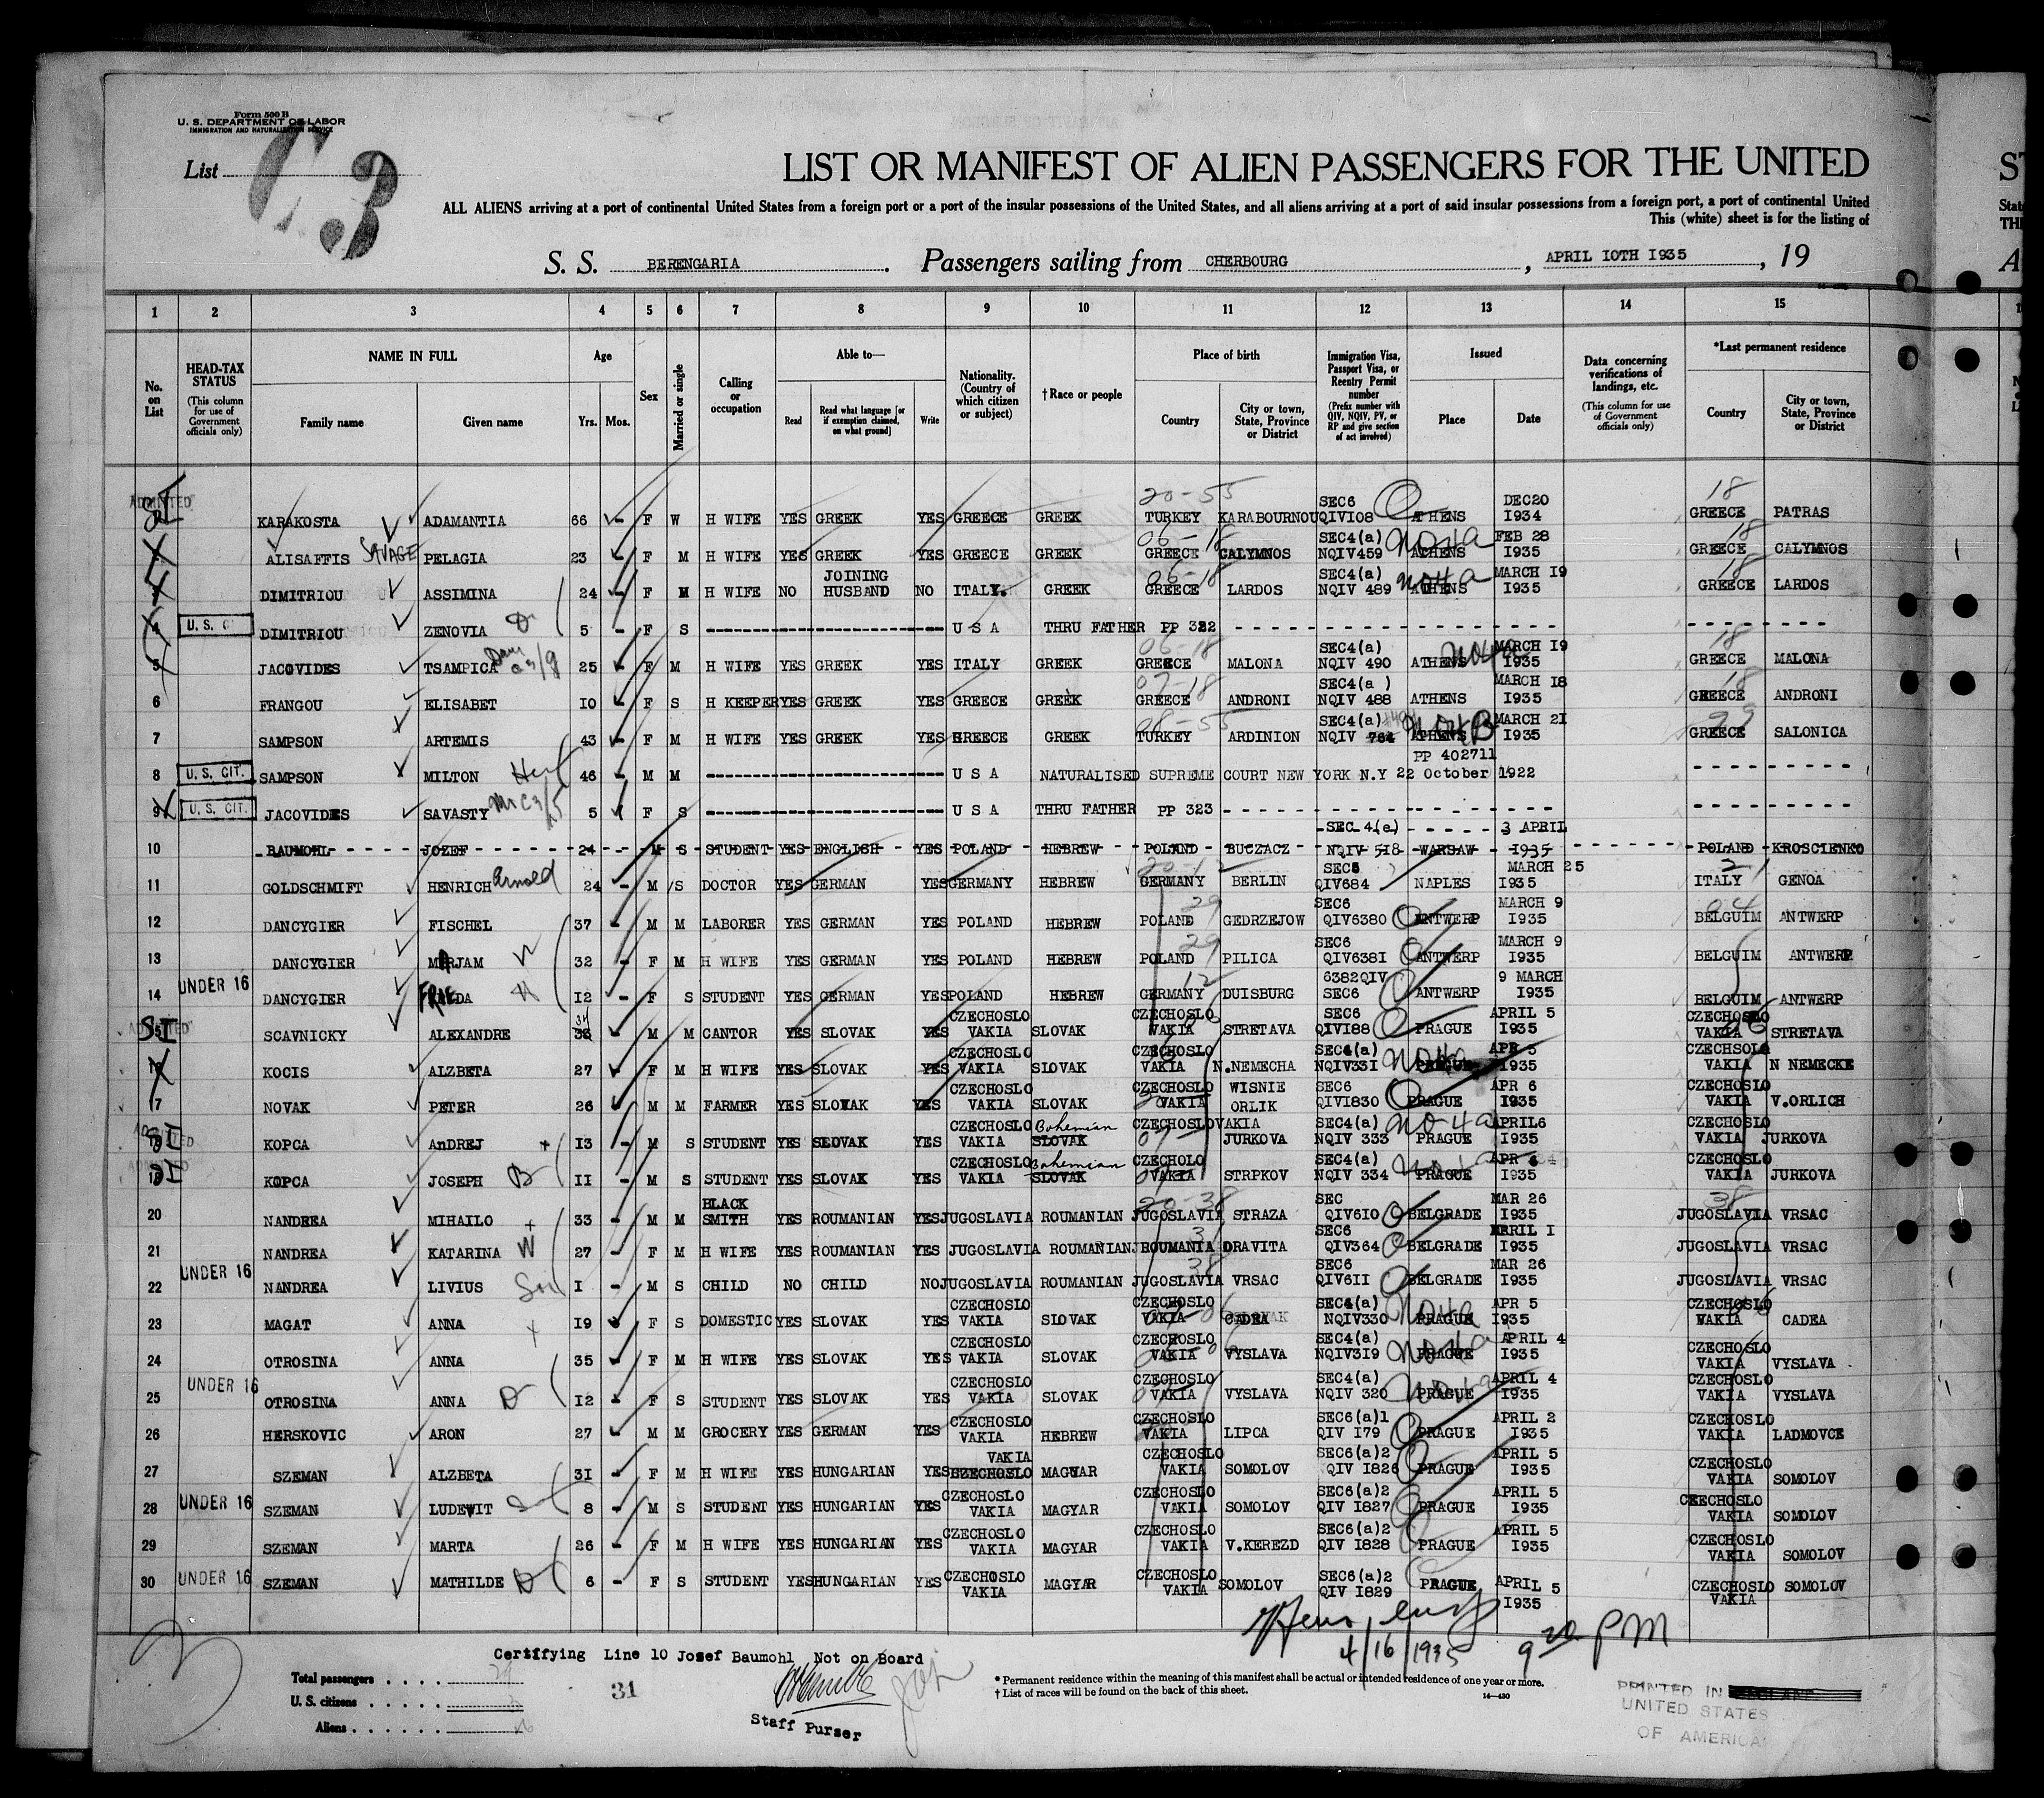 Form 500 B
U. S. DEPARTMENT OF LABOR
IMMIGRATION AND NATURALIZATION SERVICE
List
C3
LIST OR MANIFEST OF ALIEN PASSENGERS FOR THE UNITED
ALL ALIENS arriving at a port of continental United States from a foreign port or a port of the insular possessions of the United States, and all aliens arriving at a port of said insular possessions from a foreign port, a port of continental United
This (white) sheet is for the listing of
S. S. BERENGARIA. Passengers sailing from CHERBOURG, APRIL IOTH I935, 19
1 2 3 4 5 6 7 8 9 10 11 12 13 14 15
No. on List
HEAD-TAX STATUS (This column for use of Government officials only)
NAME IN FULL Family name Given name
Age Yrs. Mos.
Sex
Married or single
Calling or occupation
Able to— Read Read what language [or if exemption claimed, on what ground] Write
Nationality. (Country of which citizen or subject)
†Race or people
Place of birth Country City or town, State, Province or District
Immigration Visa, Passport Visa, or Reentry Permit number (Prefix number with QIV, NQIV, PV, or RP and give section of act involved)
Issued Place Date
Data concerning verifications of landings, etc. (This column for use of Government officials only)
*Last permanent residence Country City or town, State, Province or District
ADMITTED SI KARAKOSTA ADAMANTIA 66 - F W H WIFE YES GREEK YES GREECE GREEK 20-55 TURKEY KARABOURNOU SEC6 QIVI08 ATHENS DEC20 I934 18 GREECE PATRAS
ALISAFFIS SAVAGE PELAGIA 23 - F M H WIFE YES GREEK YES GREECE GREEK 06-18 GREECE CALYMNOS SEC4(a) NQIV459 no4a ATHENS FEB 28 I935 18 GREECE CALYMNOS
DIMITRIOU ASSIMINA 24 - F M H WIFE NO JOINING HUSBAND NO ITALY. GREEK 06-18 GREECE LARDOS SEC4(a) NQIV 489 no4a ATHENS MARCH I9 I935 18 GREECE LARDOS
4 U. S. C DIMITRIOU ZENOVIA D 5 - F S U S A THRU FATHER PP 322
5 JACOVIDES TSAMPICA 25 - F M H WIFE YES GREEK YES ITALY GREEK 06-18 GREECE MALONA SEC4(a) NQIV 490 ATHENS no4a MARCH I9 I935 18 GREECE MALONA
6 FRANGOU ELISABET IO - F S H KEEPER YES GREEK YES GREECE GREEK 07-18 GREECE ANDRONI SEC4(a ) NQIV 488 ATHENS MARCH I8 I935 18 GREECE ANDRONI
7 SAMPSON ARTEMIS 43 - F M H WIFE YES GREEK YES GREECE GREEK 08-55 TURKEY ARDINION SEC4(a) NQIV 764 ATHENS MARCH 2I I935 GREECE SALONICA
8 U. S. CIT. SAMPSON MILTON 46 - M M U S A NATURALISED SUPREME COURT NEW YORK N.Y 22 October 1922 PP 402711
9 U. S. CIT. JACOVIDES SAVASTY 5 F S U S A THRU FATHER PP 323
10 BAUMOHL JOZEF 24 - M S STUDENT YES ENGLISH YES POLAND HEBREW POLAND BUCZACZ SEC 4(e) NQIV 518 WARSAW 3 APRIL I935 POLAND KROSCIENKO
11 GOLDSCHMIFT HENRICH Arnold 24 - M S DOCTOR YES GERMAN YES GERMANY HEBREW 20-12 GERMANY BERLIN SEC5 QIV684 NAPLES MARCH 25 I935 21 ITALY GENOA
12 DANCYGIER FISCHEL 37 - M M LABORER YES GERMAN YES POLAND HEBREW 29 POLAND GEDRZEJOW SEC6 QIV6380 ANTWERP MARCH 9 I935 04 BELGUIM ANTWERP
13 DANCYGIER MARJAM W 32 - F M H WIFE YES GERMAN YES POLAND HEBREW 29 POLAND PILICA SEC6 QIV638I ANTWERP MARCH 9 I935 BELGUIM ANTWERP
14 UNDER 16 DANCYGIER FRIEDA I2 - F S STUDENT YES GERMAN YES POLAND HEBREW 12 GERMANY DUISBURG 6382QIV SEC6 ANTWERP 9 MARCH I935 BELGUIM ANTWERP
SI ADMITTED SCAVNICKY ALEXANDRE 34 - M M CANTOR YES SLOVAK YES CZECHOSLO VAKIA SLOVAK CZECHOSLO VAKIA STRETAVA SEC6 QIVI88 PRAGUE APRIL 5 I935 CZECHOSLO VAKIA STRETAVA
KOCIS ALZBETA 27 - F M H WIFE YES SLOVAK YES CZECHOSLO VAKIA SLOVAK CZECHOSLO VAKIA N.NEMECHA SEC4(a) NQIV33I no4a PRAGUE APR 5 I935 CZECHSOLO VAKIA N NEMECKE
17 NOVAK PETER 26 - M M FARMER YES SLOVAK YES CZECHOSLO VAKIA SLOVAK CZECHOSLO VAKIA WISNIE ORLIK SEC6 QIVI830 PRAGUE APR 6 I935 CZECHOSLO VAKIA V.ORLICH
SI ADMITTED KOPCA AnDREJ + I3 - M S STUDENT YES SLOVAK YES CZECHOSLO VAKIA Bohemian SLOVAK CZECHOSLOVAKIA 07 JURKOVA SEC4(a) NQIV 333 no 4a PRAGUE APRIL6 I935 CZECHOSLO VAKIA JURKOVA
SI ADMITTED KOPCA JOSEPH B II - M S STUDENT YES SLOVAK YES CZECHOSLO VAKIA Bohemian SLOVAK CZECHOLO VAKIA STRPKOV SEC4(a) NQIV 334 no4a PRAGUE APR 6 I935 CZECHOSLO VAKIA JURKOVA
20 NANDREA MIHAILO + 33 - M M BLACK SMITH YES ROUMANIAN YES JUGOSLAVIA ROUMANIAN 20-38 JUGOSLAVIA STRAZA SEC QIV6IO BELGRADE MAR 26 I935 38 JUGOSLAVIA VRSAC
21 NANDREA KATARINA W 27 - F M H WIFE YES ROUMANIAN YES JUGOSLAVIA ROUMANIAN ROUMANIA ORAVITA SEC6 QIV364 BELGRADE APRIL I I935 JUGOSLAVIA VRSAC
22 UNDER 16 NANDREA LIVIUS Son I - M S CHILD NO CHILD NO JUGOSLAVIA ROUMANIAN 38 JUGOSLAVIA VRSAC SEC6 QIV6II BELGRADE MAR 26 I935 JUGOSLAVIA VRSAC
23 MAGAT ANNA + I9 - F S DOMESTIC YES SLOVAK YES CZECHOSLO VAKIA SLOVAK CZECHOSLO VAKIA CADEA SEC4(a) NQIV330 no4a PRAGUE APR 5 I935 CZECHOSLO VAKIA CADEA
24 OTROSINA ANNA 35 - F M H WIFE YES SLOVAK YES CZECHOSLO VAKIA SLOVAK CZECHOSLO VAKIA VYSLAVA SEC4(a) NQIV3I9 no4a PRAGUE APRIL 4 I935 CZECHOSLO VAKIA VYSLAVA
25 UNDER 16 OTROSINA ANNA D I2 - F S STUDENT YES SLOVAK YES CZECHOSLO VAKIA SLOVAK CZECHOSLO VAKIA VYSLAVA SEC4(a) NQIV 320 no4a PRAGUE APRIL 4 I935 CZECHOSLO VAKIA VYSLAVA
26 HERSKOVIC ARON 27 - M M GROCERY YES GERMAN YES CZECHOSLO VAKIA HEBREW CZECHOSLO VAKIA LIPCA SEC6(a)1 QIV I79 PRAGUE APRIL 2 I935 CZECHOSLO VAKIA LADMOVCE
27 SZEMAN ALZBETA 3I - F M H WIFE YES HUNGARIAN YES VAKIA CZECHOSLO MAGYAR CZECHOSLO VAKIA SOMOLOV SEC6(a)2 QIV I826 PRAGUE APRIL 5 I935 CZECHOSLO VAKIA SOMOLOV
28 UNDER 16 SZEMAN LUDEWIT 8 - M S STUDENT YES HUNGARIAN YES CZECHOSLO VAKIA MAGYAR CZECHOSLO VAKIA SOMOLOV SEC6(a)2 QIV I827 PRAGUE APRIL 5 I935 CZECHOSLO VAKIA SOMOLOV
29 SZEMAN MARTA 26 - F M H WIFE YES HUNGARIAN YES CZECHOSLO VAKIA MAGYAR CZECHOSLO VAKIA V.KEREZD SEC6(a)2 QIV I828 PRAGUE APRIL 5 I935 CZECHOSLO VAKIA SOMOLOV
30 UNDER 16 SZEMAN MATHILDE D 6 - F S STUDENT YES HUNGARIAN YES CZECHOSLO VAKIA MAGYAR CZECHOSLO VAKIA SOMOLOV SEC6(a)2 QIV I829 PRAGUE APRIL 5 I935 CZECHOSLO VAKIA SOMOLOV
4/16/1935 9 20 PM
Certifying Line 10 Josef Baumohl Not on Board
Total passengers
U. S. citizens 3
Aliens
31
Staff Purser
* Permanent residence within the meaning of this manifest shall be actual or intended residence of one year or more.
† List of races will be found on the back of this sheet.
14—430
PRINTED IN
UNITED STATES
OF AMERICA